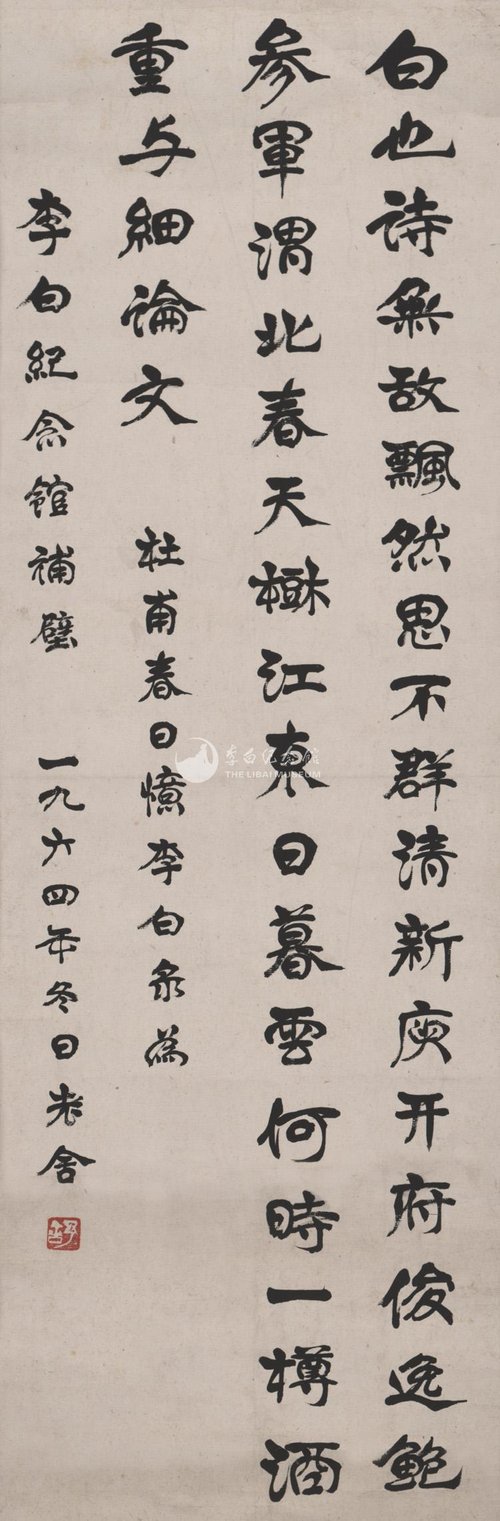 白也詩無敌飄然思不群清新庾开府俊逸鲍
参軍渭北春天樹江东日暮雲何時一樽酒
重与細論文
杜甫春日憶李白录為
李白紀念館補壁 一九六四年冬日老舍
李白纪念馆
THE LIBAI MUSEUM